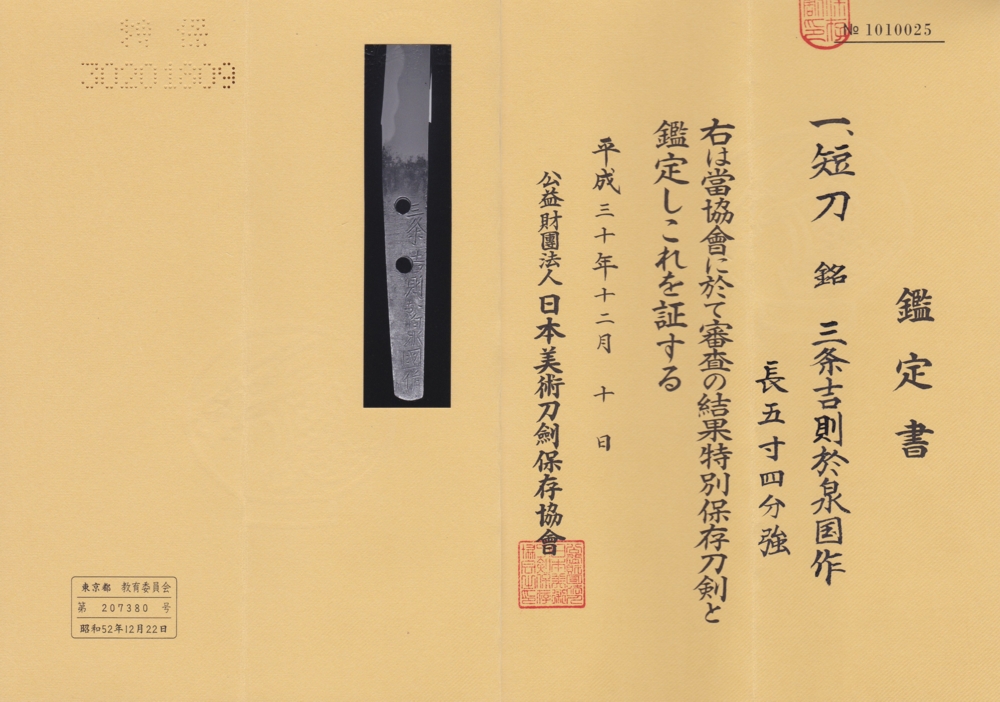 № 1010025
鑑定書
一、短刀 銘 三条吉則於泉国作
長五寸四分強
右は當協會に於て審査の結果特別保存刀剣と
鑑定しこれを証する
平成三十年十二月十日
公益財團法人日本美術刀劍保存協會
特保
30201809
東京都 教育委員会
第 207380 号
昭和52年12月22日